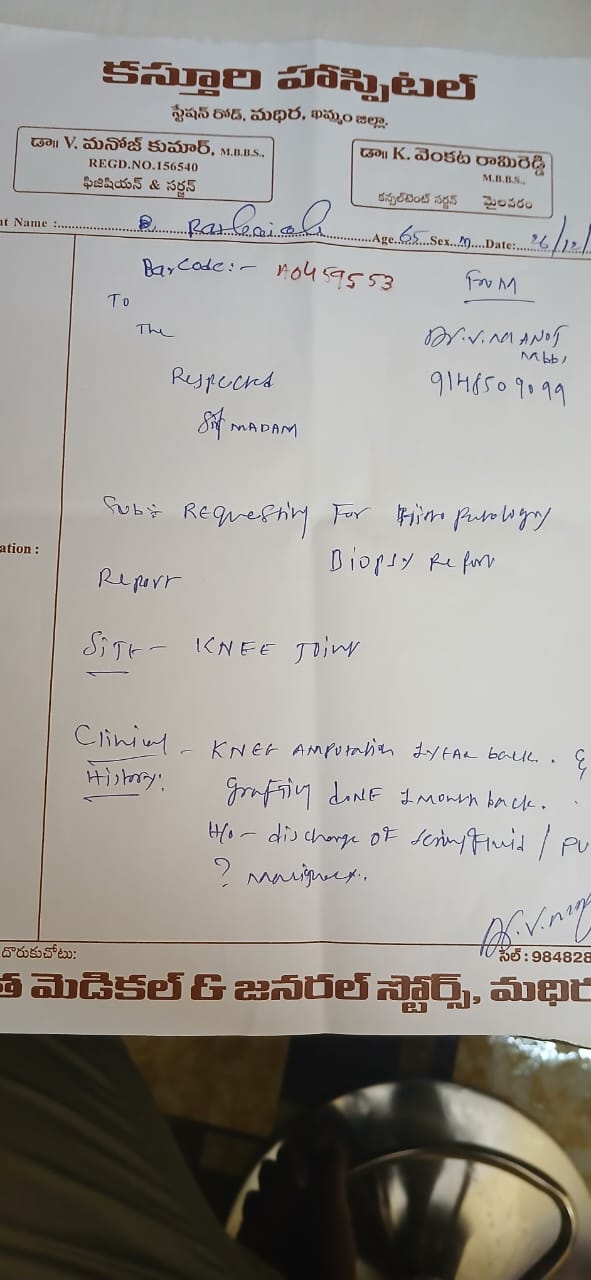 కస్తూరి హాస్పిటల్
స్టేషన్ రోడ్, మధిర, ఖమ్మం జిల్లా.
డా॥ V. మనోజ్ కుమార్, M.B.B.S.,
REGD.NO.156540
ఫిజిషియన్ & సర్జన్
డా॥ K. వెంకట రామిరెడ్డి
M.B.B.S.,
కన్సల్టెంట్ సర్జన్ మైలవరం
nt Name :..........Age. 65 Sex. M Date: 26/12/
BarCode:- A0459553
From
To
The
Dr. V. MANOJ
Mbbs
Respected
9148509099
Sir/ MADAM
Sub:- REQuesting For Histo Patology
ation :
Biopsy Report
Report
SITE - KNEE Joint
Clinical - KNEE Amputation 1 year back. &
History: grafting done 1 month back.
H/o - discharge of serious Fluid / PU
? Malignex..
Dr. V. man
దొరుకుచోటు:
సెల్ : 984828
త మెడికల్ & జనరల్ స్టోర్స్, మధిర